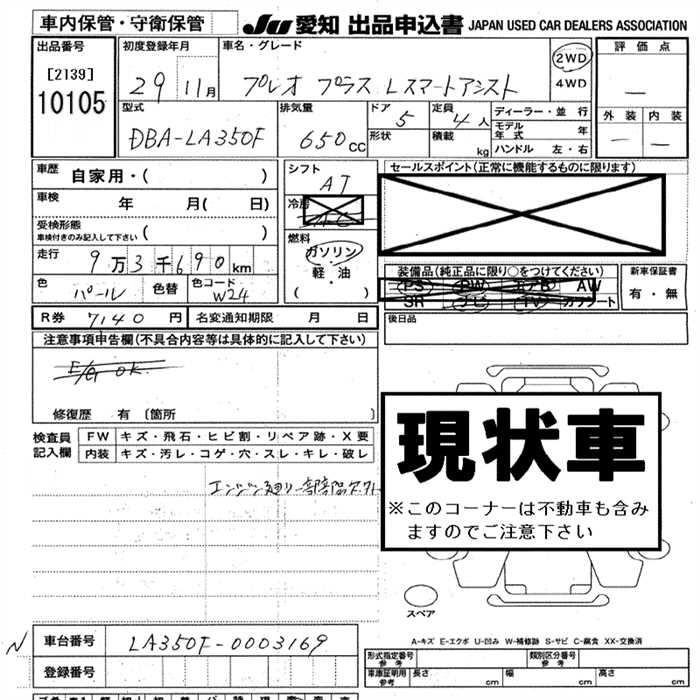 車内保管・守衛保管
JU 愛知 出品申込書 JAPAN USED CAR DEALERS ASSOCIATION
出品番号 [2139] 10105
初度登録年月 29 11月
車名・グレード プレオ プラス Lスマートアシスト
2WD
4WD
評価点 —
型式 DBA-LA350F
排気量 650 CC
ドア 5
形状
定員 4人
積載 kg
ディーラー・並行
モデル年式 年
ハンドル 左・右
外装 内装
— —
車歴 自家用・( )
車検 年 月( 日)
受検形態
車検付きのみ記入して下さい ( )
走行 9万3千690km
色 パール 色替 色コード W24
シフト AT
冷房
燃料
ガソリン・
軽・油
( )
セールスポイント(正常に機能するものに限ります)
装備品(純正品に限り○をつけてください)
PS PW エアB AW
SR ナビ TV カワシート
新車保証書
有・無
R券 7140円 名変通知期限 月 日
後日品
注意事項申告欄(不具合内容等は具体的に記入して下さい)
E/G OK.
修復歴 有 〔箇所 〕
検査員記入欄
FW キズ・飛石・ヒビ割・リペア跡・X要
内装 キズ・汚レ・コゲ・穴・スレ・キレ・破レ
エンジン廻り一部部品欠
現状車
※このコーナーは不動車も含み
ますのでご注意下さい
スペア
A-キズ E-エクボ U-凹み W-補修跡 S-サビ C-腐食 XX-交換済
N 車台番号 LA350F-0003169
登録番号
形式指定番号 参考
類別区分番号 参考
車庫証明用 参考 長さ cm 幅 cm 高さ cm